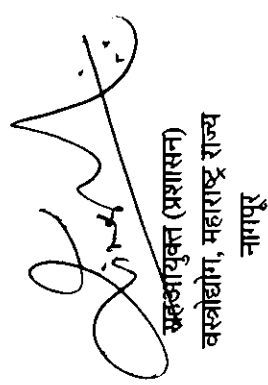 सहआयुक्त (प्रशासन)
वस्त्रोद्योग, महाराष्ट्र राज्य
नागपूर